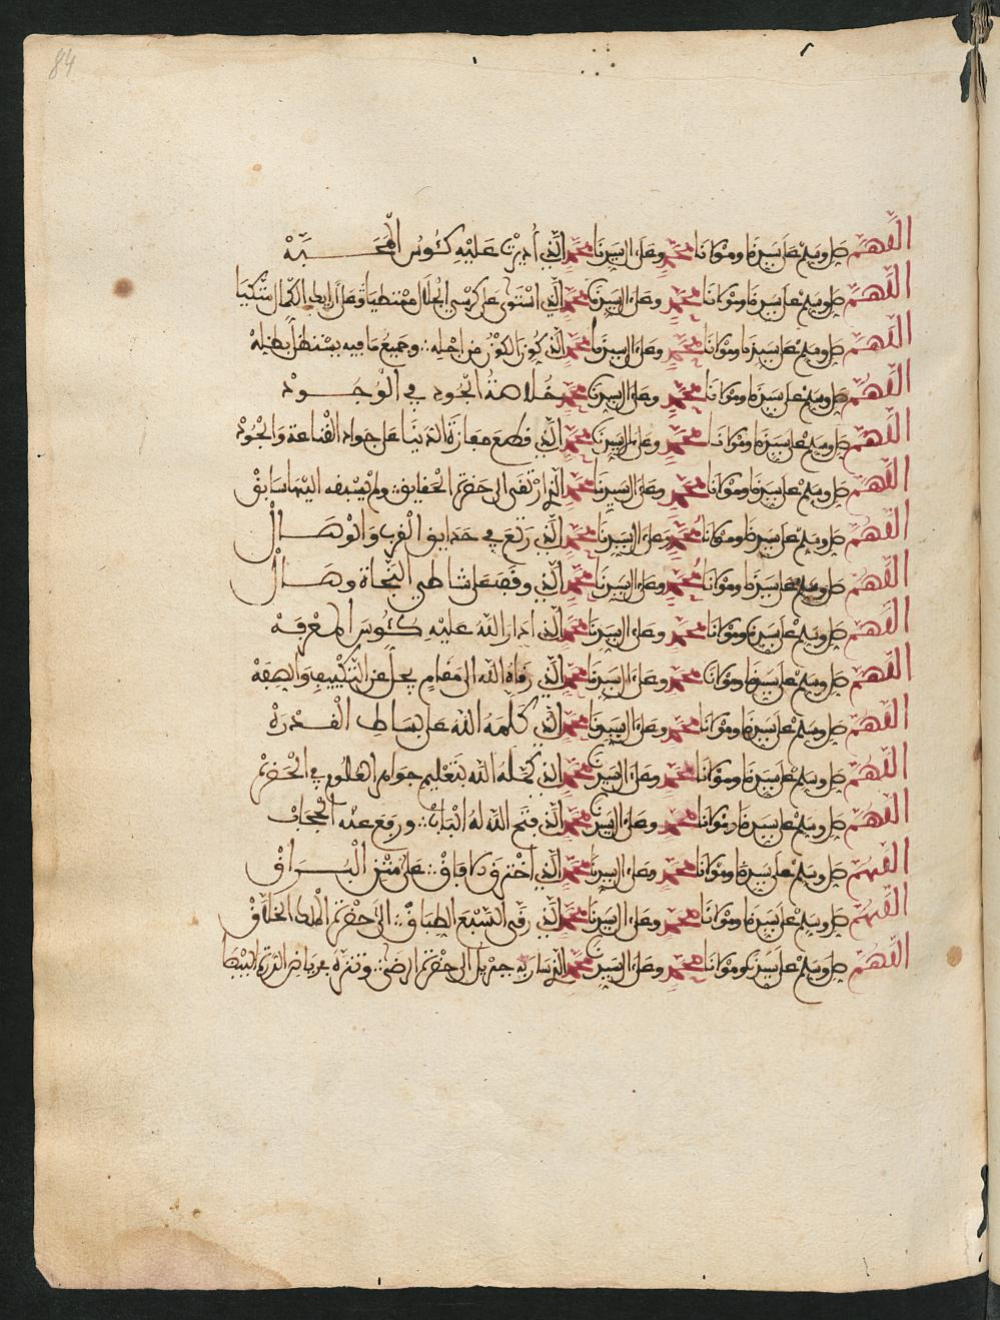 84
اللهم صل وسلم على سيدنا ومولانا محمد وعلى ال سيدنا محمد الذي أديرت عليه كئوس المحبه
اللهم صل وسلم على سيدنا ومولانا محمد وعلى ال سيدنا محمد الذي استوى على كرسي الجلال ممتطيا وعلى الكمال متكيا
اللهم صل وسلم على سيدنا ومولانا محمد وعلى ال سيدنا محمد الذي كون الكون من اجله وجميع ما فيه يستظل بظله
اللهم صل وسلم على سيدنا ومولانا محمد وعلى ال سيدنا محمد خلاصة الجود في الوجود
اللهم صل وسلم على سيدنا ومولانا محمد وعلى ال سيدنا محمد الذي قطع مفازة الدنيا على جواد القناعة والجود
اللهم صل وسلم على سيدنا ومولانا محمد وعلى ال سيدنا محمد الذي ارتقى الى حضرة الحقايق ولم يسبقه اليها سابق
اللهم صل وسلم على سيدنا ومولانا محمد وعلى ال سيدنا محمد الذي رتع في حدايق القرب والوصال
اللهم صل وسلم على سيدنا ومولانا محمد وعلى ال سيدنا محمد الذي وقف على شاطي النجاة وصال
اللهم صل وسلم على سيدنا ومولانا محمد وعلى ال سيدنا محمد الذي ادار الله عليه كئوس المعرفه
اللهم صل وسلم على سيدنا ومولانا محمد وعلى ال سيدنا محمد الذي رقاه الله الى مقام يجل عن التكييف والصفه
اللهم صل وسلم على سيدنا ومولانا محمد وعلى ال سيدنا محمد الذي كلمه الله على بساط القدره
اللهم صل وسلم على سيدنا ومولانا محمد وعلى ال سيدنا محمد الذي كمله الله بتعليم جوامع العلوم في الحضرة
اللهم صل وسلم على سيدنا ومولانا محمد وعلى ال سيدنا محمد الذي فتح الله له الباب ورفع عنه الحجاب
اللهم صل وسلم على سيدنا ومولانا محمد وعلى ال سيدنا محمد الذي اخترق الافاق على متن البراق
اللهم صل وسلم على سيدنا ومولانا محمد وعلى ال سيدنا محمد الذي رقى السبع الطباق الى حضرة الملك الخلاق
اللهم صل وسلم على سيدنا ومولانا محمد وعلى ال سيدنا محمد الذي سار به جبريل الى حضرة الرضى وتنزه في رياض الدرة البيضا